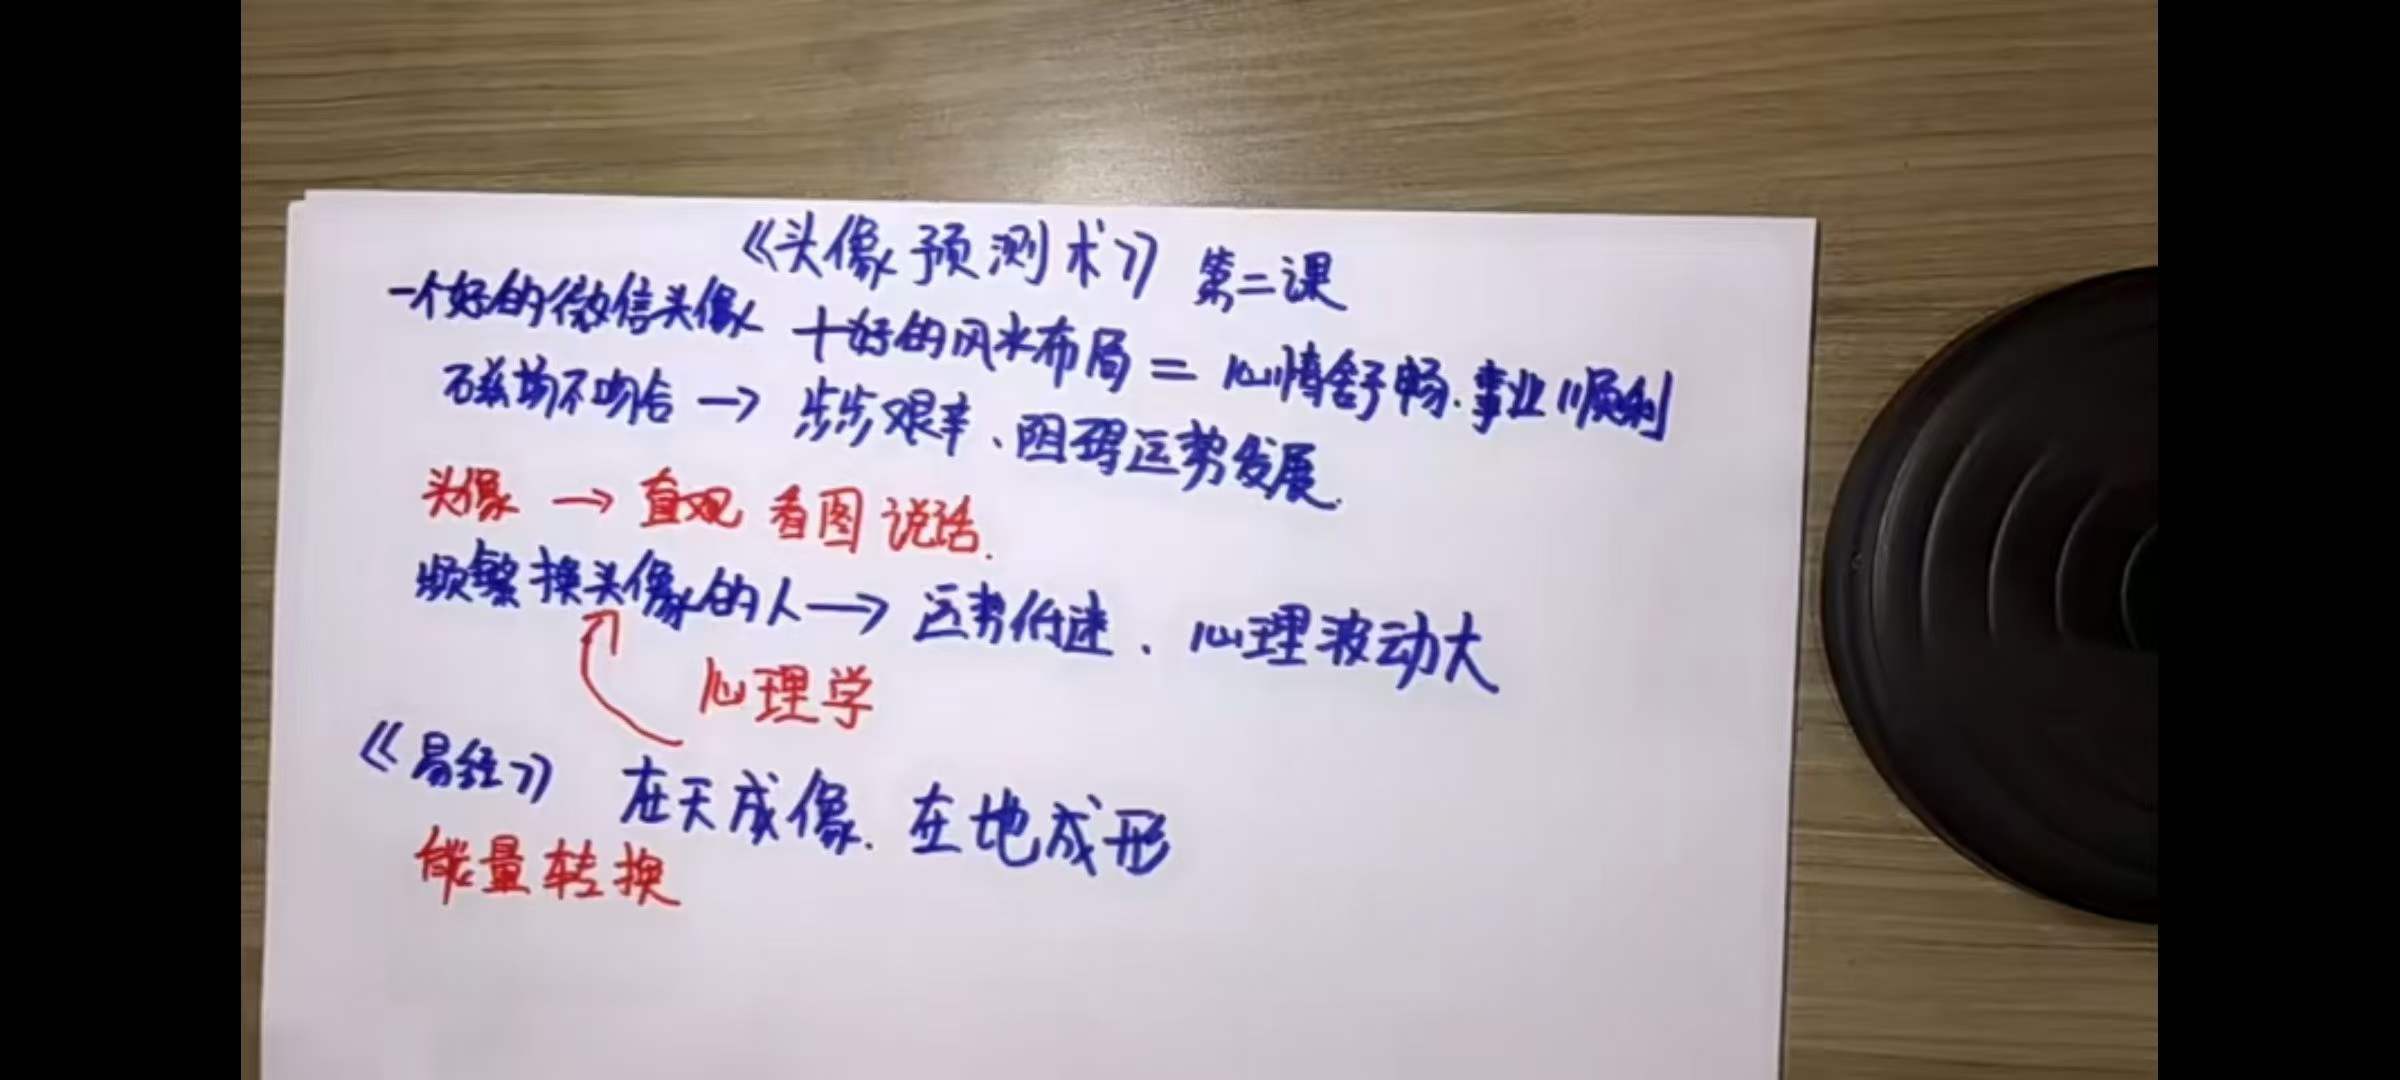 《头像预测术》 第二课
一个好的微信头像 +好的风水布局 = 心情舒畅.事业顺利
磁场不吻合 → 步步艰辛、阻碍运势发展.
头像 → 直观 看图说话.
频繁换头像的人 → 运势低迷、心理波动大
心理学
《易经》 在天成像.在地成形
能量转换